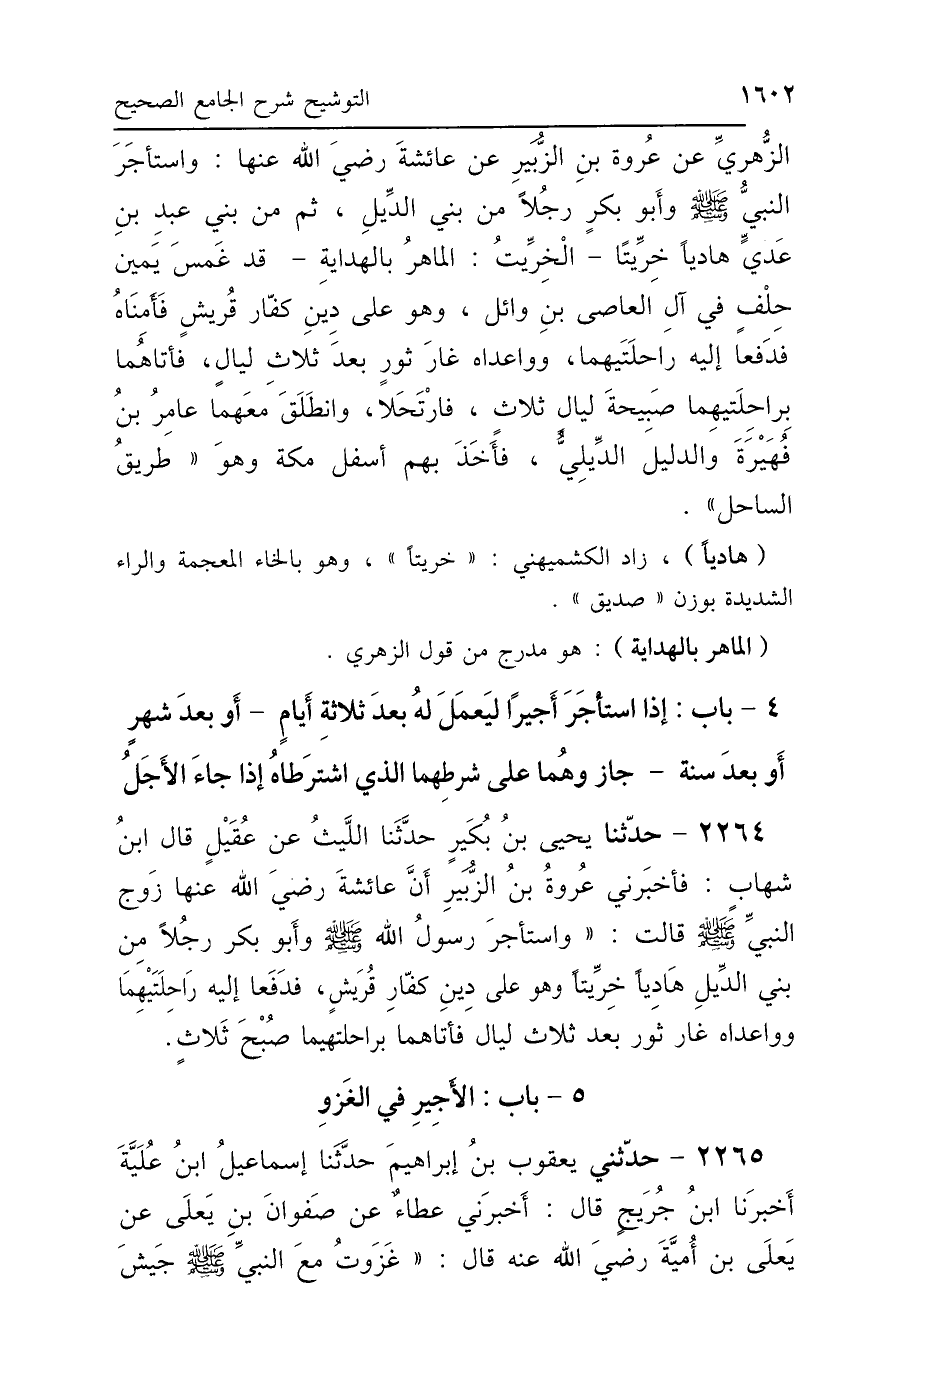 ١٦٠٢ التوشيح شرح الجامع الصحيح
الزُّهريِّ عن عُروة بنِ الزُّبَيرِ عن عائشةَ رضيَ الله عنها : واستأجَرَ
النبيُّ ﷺ وأَبو بكرٍ رجُلاً من بني الدِّيلِ ، ثم من بني عبدِ بنِ
عَديٍّ هادياً خِرِّيتًا – الْخِرِّيتُ : الماهرُ بالهدايةِ – قد غَمسَ يَمين
حِلْفٍ في آلِ العاصى بنِ وائل ، وهو على دِينِ كفّار قُريشٍ فَأَمِنَاهُ
فدَفعا إليه راحلَتَيهما، وواعداه غارَ ثورٍ بعدَ ثلاثِ ليالٍ، فأتاهُما
بِراحِلَتيهِما صَبِيحةَ ليالٍ ثلاثٍ ، فارْتَحَلا، وانطَلَقَ معَهما عامِرُ بنُ
فُهَيْرَةَ والدليل الدِّيلِيُّ ، فأَخَذَ بهم أسفل مكة وهوَ « طريقُ
الساحل» .
( هادياً ) ، زاد الكشميهني : « خريتاً » ، وهو بالخاء المعجمة والراء
الشديدة بوزن « صديق » .
( الماهر بالهداية ) : هو مدرج من قول الزهري .
٤ – باب : إذا استأجَرَ أَجيرًا ليَعمَلَ لهُ بعدَ ثلاثةِ أَيامٍ – أَو بعدَ شهرٍ
أَو بعدَ سنة – جاز وهُما على شرطِهما الذي اشترَطاهُ إذا جاءَ الأَجَلُ
٢٢٦٤ – حدّثنا يحيى بنُ بُكَيرٍ حدَّثَنا اللَّيثُ عن عُقَيْلٍ قال ابنُ
شهابٍ : فأخبَرني عُروةُ بنُ الزُّبَيرِ أَنَّ عائشةَ رضيَ الله عنها زَوج
النبيِّ ﷺ قالت : « واستأجرَ رسولُ الله ﷺ وأَبو بكر رجُلاً مِن
بني الدِّيلِ هَادِياً خرِّيتاً وهو على دِينِ كفّارِ قُرَيشٍ، فدَفَعا إليه رَاحِلَتَيْهِمَا
وواعداه غار ثور بعد ثلاث ليال فأتاهما براحلتهيما صُبْحَ ثَلاثٍ.
٥ – باب : الأَجيرِ في الغَزوِ
٢٢٦٥ – حدّثني يعقوب بنُ إبراهيمَ حدَّثَنا إسماعيلُ ابنُ عُلَيَّةَ
أَخبرَنا ابنُ جُرَيجٍ قال : أَخبرَني عطاءٌ عن صفوانَ بنِ يَعلَى عن
يَعلَى بن أُميَّةَ رضيَ الله عنه قال : « غَزَوتُ معَ النبيِّ ﷺ جَيشَ